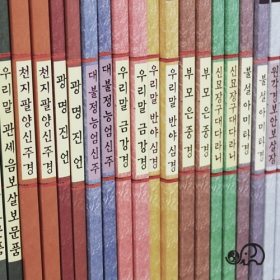 우리말 관세음보살보문품
천지팔양신주경
천지팔양신주경
광명진언
광명진언
대불정능엄신주
대불정능엄신주
우리말 금강경
우리말 금강경
우리말 반야심경
우리말 반야심경
부모은중경
부모은중경
신묘장구대다라니
신묘장구대다라니
불설아미타경
불설아미타경
원각경보안보살장